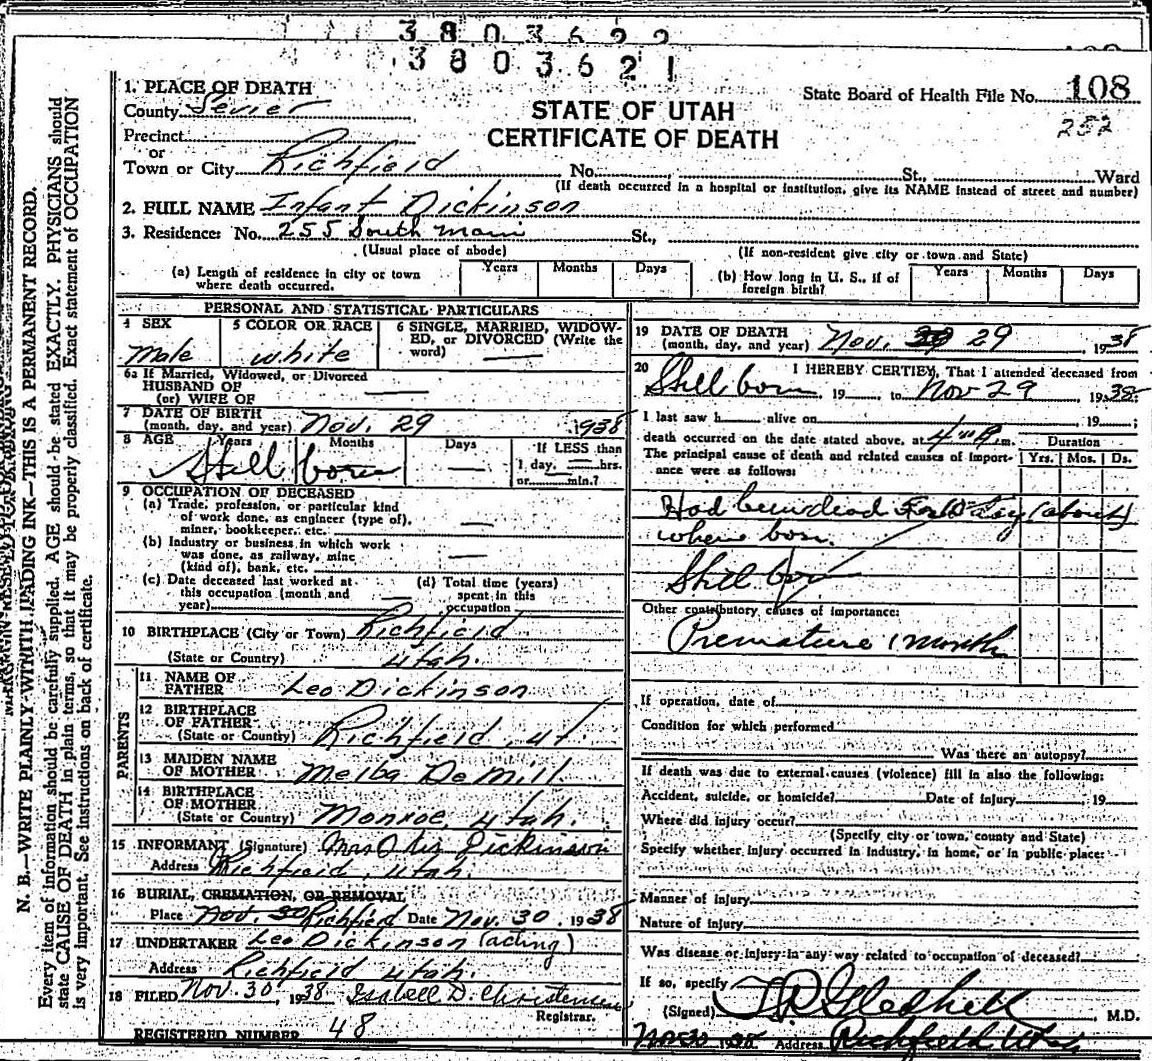 3 8 0 3 6 2 2
3 8 0 3 6 2 1
1. PLACE OF DEATH
County Sevier
Precinct
or
Town or City Richfield
STATE OF UTAH
CERTIFICATE OF DEATH
State Board of Health File No. 108
252
No. St., Ward
(If death occurred in a hospital or institution, give its NAME instead of street and number)
2. FULL NAME Infant Dickinson
3. Residence: No. 255 South Main St.,
(Usual place of abode) (If non-resident give city or town and State)
(a) Length of residence in city or town where death occurred. Years Months Days
(b) How long in U. S., if of foreign birth? Years Months Days
PERSONAL AND STATISTICAL PARTICULARS
4 SEX
Male
5 COLOR OR RACE
white
6 SINGLE, MARRIED, WIDOW-
ED, or DIVORCED (Write the
word)
6a If Married, Widowed, or Divorced
HUSBAND OF
(or) WIFE OF
7 DATE OF BIRTH
(month, day, and year) Nov. 29 1938
8 AGE Years Months Days If LESS than
1 day, hrs.
or min.?
Still born
9 OCCUPATION OF DECEASED
(a) Trade, profession, or particular kind
of work done, as engineer (type of),
miner, bookkeeper, etc.
(b) Industry or business in which work
was done, as railway, mine
(kind of), bank, etc.
(c) Date deceased last worked at
this occupation (month and
year)
(d) Total time (years)
spent in this
occupation
10 BIRTHPLACE (City or Town) Richfield
(State or Country) Utah.
PARENTS
11 NAME OF
FATHER Leo Dickinson
12 BIRTHPLACE
OF FATHER
(State or Country) Richfield, ut
13 MAIDEN NAME
OF MOTHER Melba DeMill
14 BIRTHPLACE
OF MOTHER
(State or Country) Monroe, Utah.
15 INFORMANT (Signature) Mrs Otis Dickinson
Address Richfield, Utah.
16 BURIAL, CREMATION, OR REMOVAL
Place Nov. 30 Richfield Date Nov. 30 1938
17 UNDERTAKER Leo Dickinson (acting)
Address Richfield Utah.
18 FILED Nov. 30 1938 Isabell D. Christensen
Registrar.
REGISTERED NUMBER 48
19 DATE OF DEATH
(month, day, and year) Nov. 29 1938
20 I HEREBY CERTIFY, That I attended deceased from
Still born, 19 , to Nov 29 1938
I last saw h alive on , 19 ;
death occurred on the date stated above, at 4 P m.
Duration
Yrs. Mos. Ds.
The principal cause of death and related causes of import-
ance were as follows:
Had been dead For Day (about)
when born.
Still born
Other contributory causes of importance:
Premature 1 month
If operation, date of
Condition for which performed
Was there an autopsy?
If death was due to external causes (violence) fill in also the following:
Accident, suicide, or homicide? Date of injury , 19
Where did injury occur?
(Specify city or town, county and State)
Specify whether injury occurred in industry, in home, or in public place:
Manner of injury
Nature of injury
Was disease or injury in any way related to occupation of deceased?
If so, specify
(Signed) T.R. Gledhill, M.D.
Nov 30 1938 Address Richfield Utah
N. B.—WRITE PLAINLY WITH UNFADING INK—THIS IS A PERMANENT RECORD.
Every item of information should be carefully supplied. AGE should be stated EXACTLY. PHYSICIANS should
state CAUSE OF DEATH in plain terms, so that it may be properly classified. Exact statement of OCCUPATION
is very important. See instructions on back of certificate.